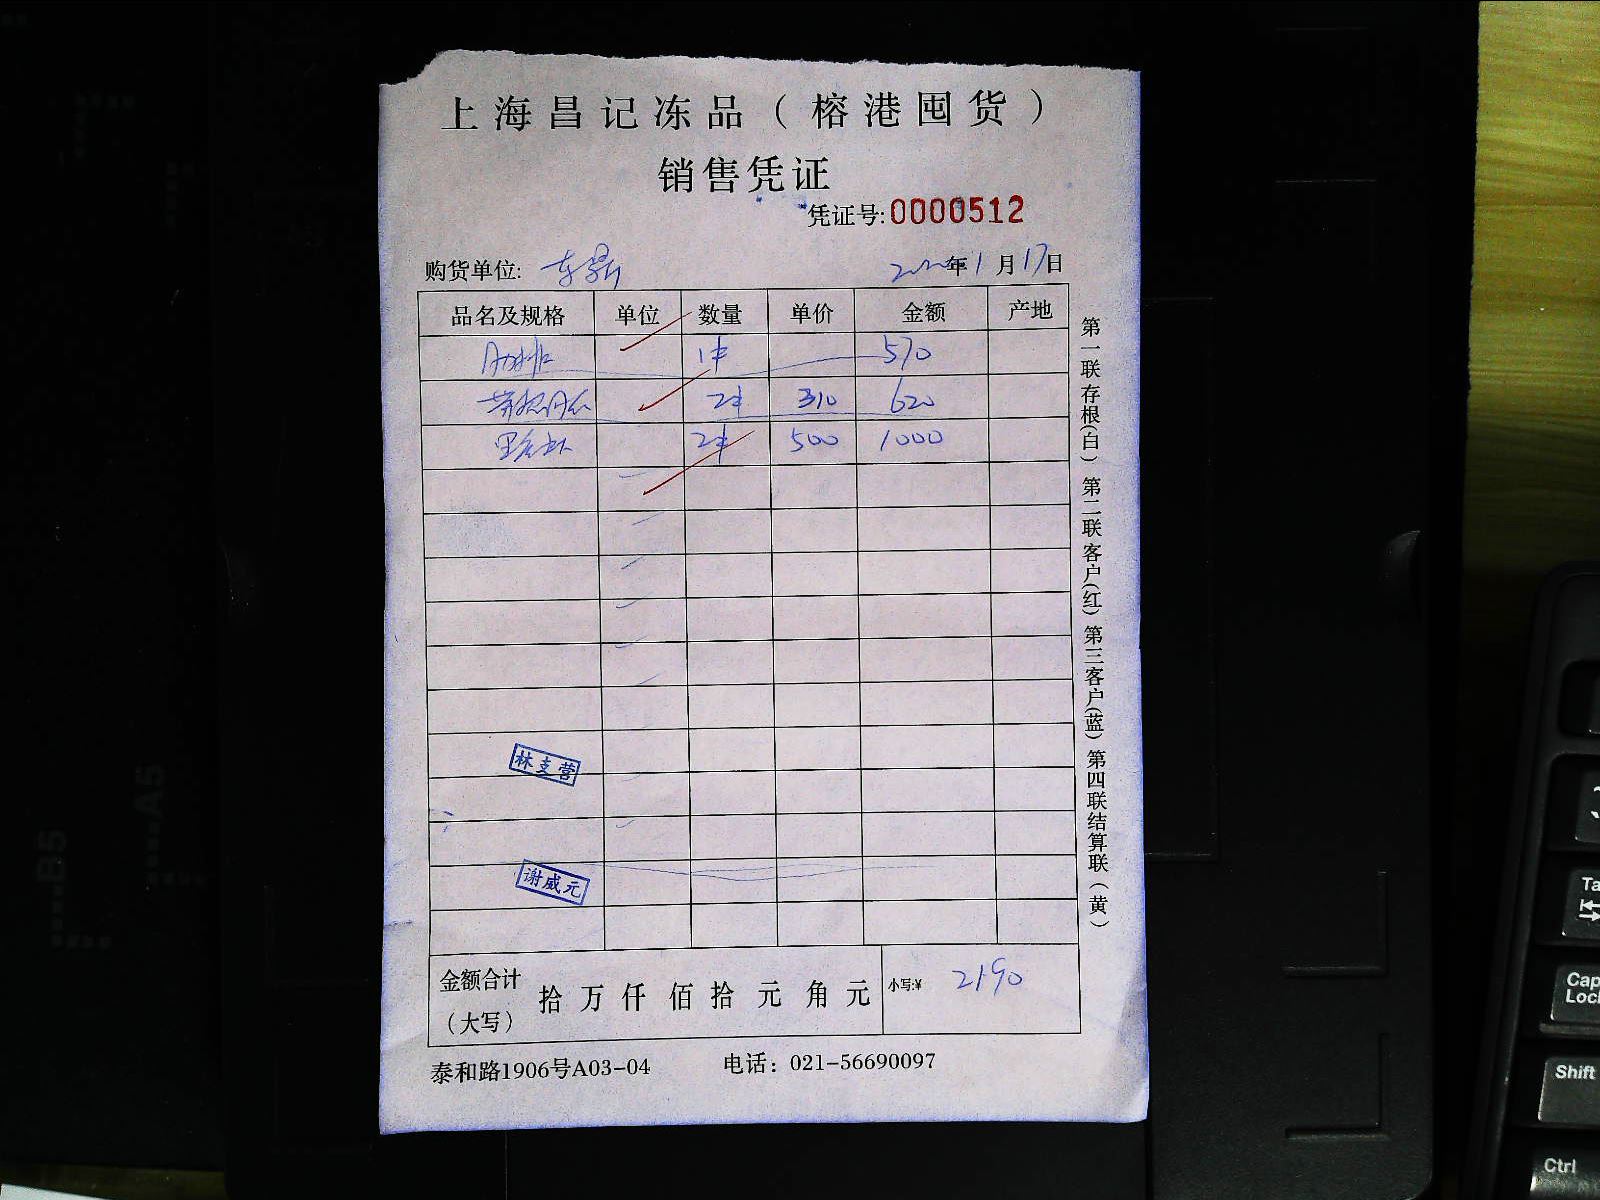 上海昌记冻品（榕港囤货）
销售凭证
凭证号:0000512
购货单位: 年1月17日
品名及规格 单位 数量 单价 金额 产地
1 570
2 310 620
2 500 1000
林支营
谢威元
金额合计（大写） 拾万仟佰拾元角元 小写:¥ 2190
泰和路1906号A03-04 电话：021-56690097
第一联存根(白) 第二联客户(红) 第三客户(蓝) 第四联结算联（黄）
B5
A5
Cap
Loc
Shift
Ctrl